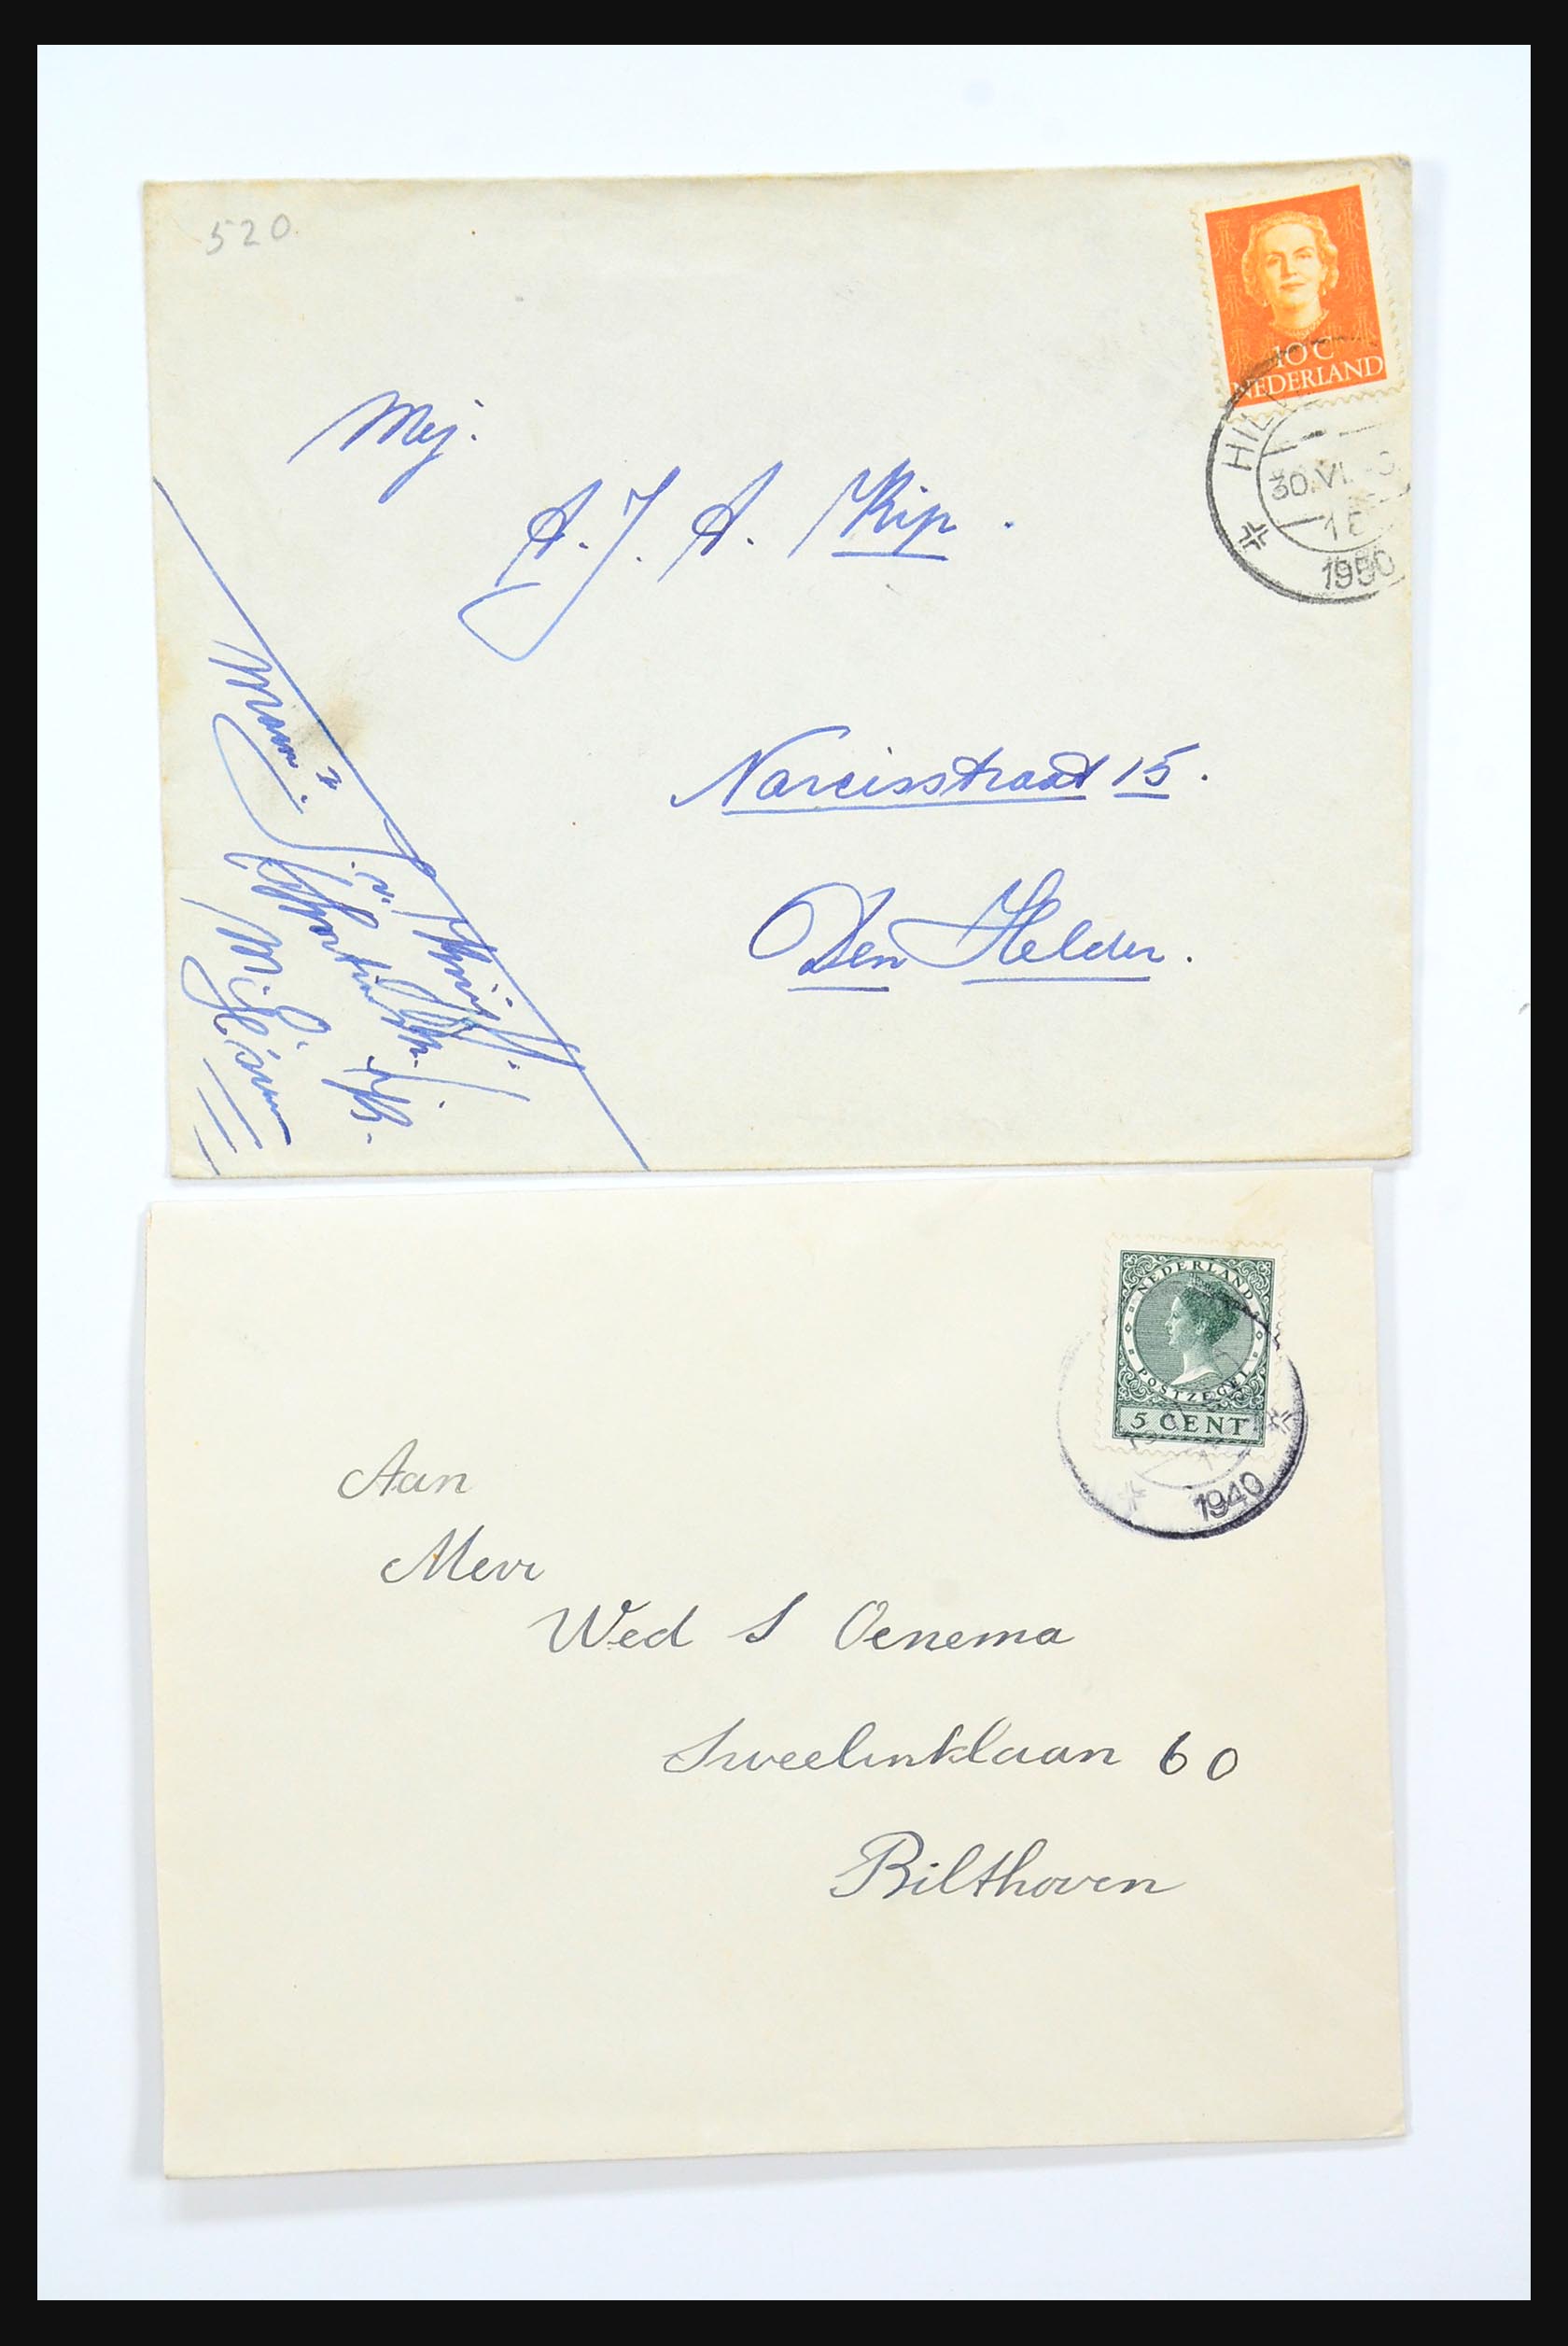 520
10 C
NEDERLAND
HIL
30.VI.
1950
Mej.
A. J. A. Kip.
Narcisstraat 15.
Den Helder.
NEDERLAND
POSTZEGEL
5 CENT
1940
Aan
Mevr
Wed S Oenema
Sweelinklaan 60
Bilthoven